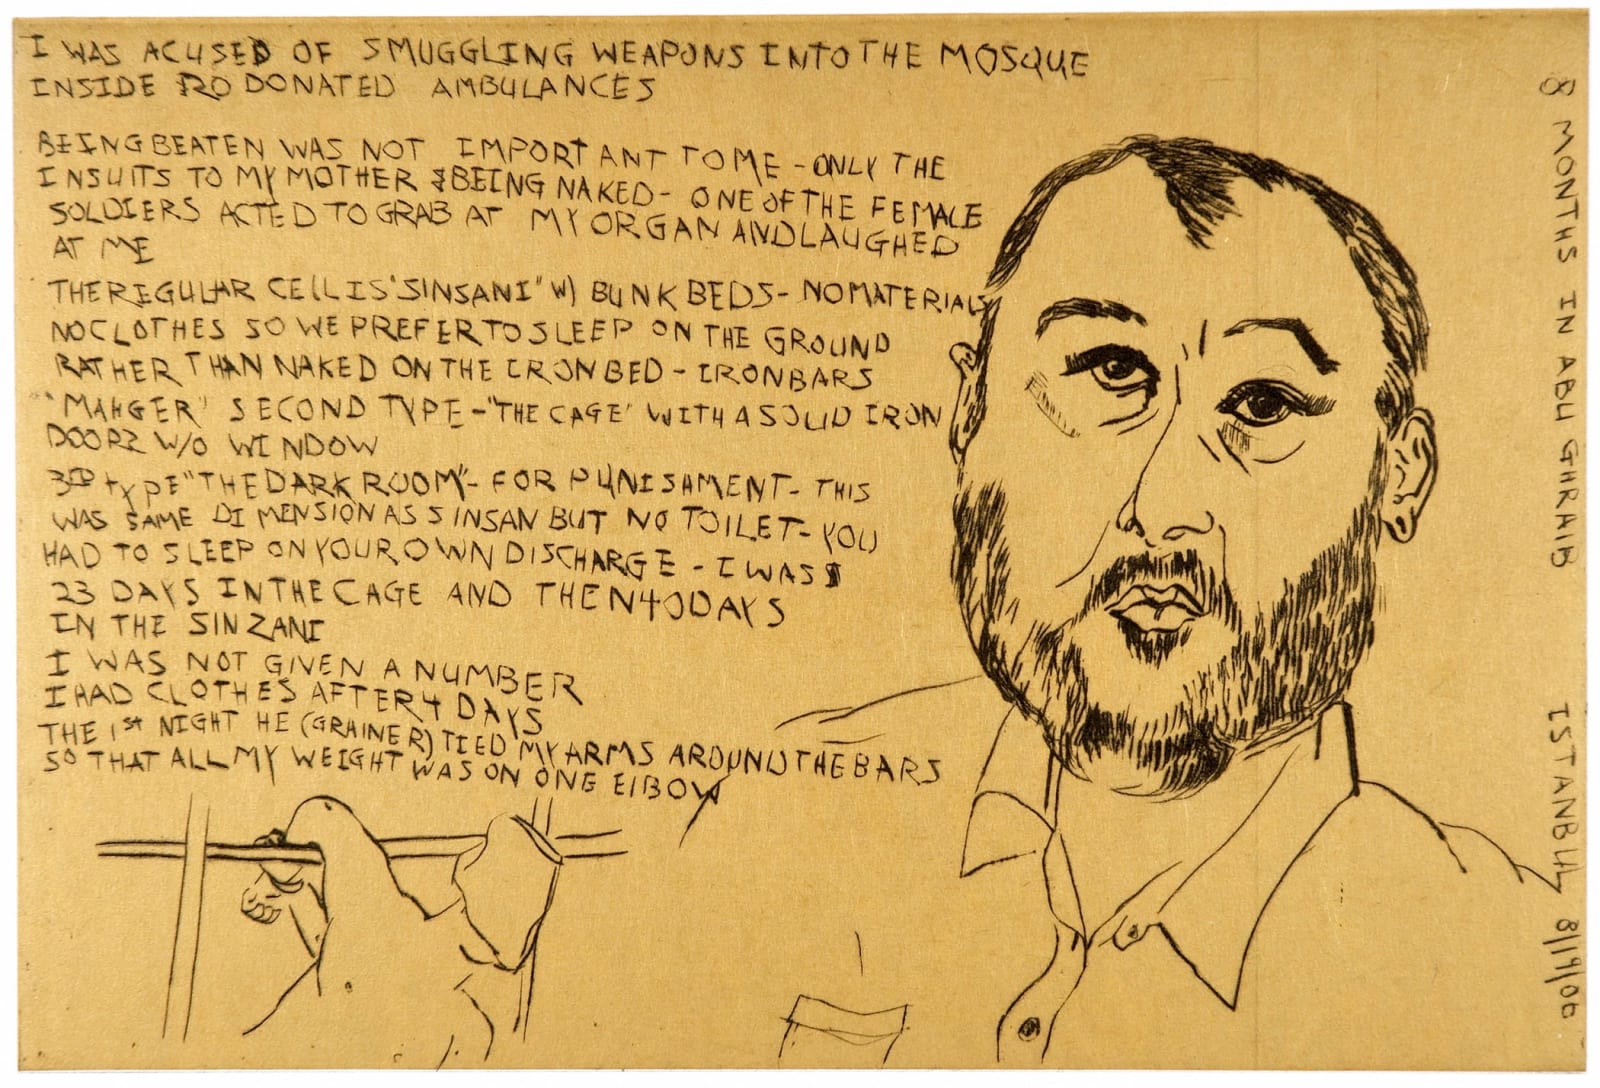 I WAS ACUSED OF SMUGGLING WEAPONS INTO THE MOSQUE
INSIDE 20 DONATED AMBULANCES
BEING BEATEN WAS NOT IMPORTANT TO ME - ONLY THE
INSULTS TO MY MOTHER & BEING NAKED - ONE OF THE FEMALE
SOLDIERS ACTED TO GRAB AT MY ORGAN AND LAUGHED
AT ME
THE REGULAR CELL IS "SINSANI" W/ BUNK BEDS - NO MATERIALS
NO CLOTHES SO WE PREFER TO SLEEP ON THE GROUND
RATHER THAN NAKED ON THE IRON BED - IRON BARS
"MAHGER" SECOND TYPE - "THE CAGE" WITH A SOLID IRON
DOOR W/O WINDOW
3RD TYPE "THE DARK ROOM" - FOR PUNISHMENT - THIS
WAS SAME DIMENSION AS SINSAN BUT NO TOILET - YOU
HAD TO SLEEP ON YOUR OWN DISCHARGE - I WAS
23 DAYS IN THE CAGE AND THEN 40 DAYS
IN THE SINZANI
I WAS NOT GIVEN A NUMBER
I HAD CLOTHES AFTER 4 DAYS
THE 1ST NIGHT HE (GRAINER) TIED MY ARMS AROUND THE BARS
SO THAT ALL MY WEIGHT WAS ON ONE ELBOW
8 MONTHS IN ABU GHRAIB
ISTANBUL